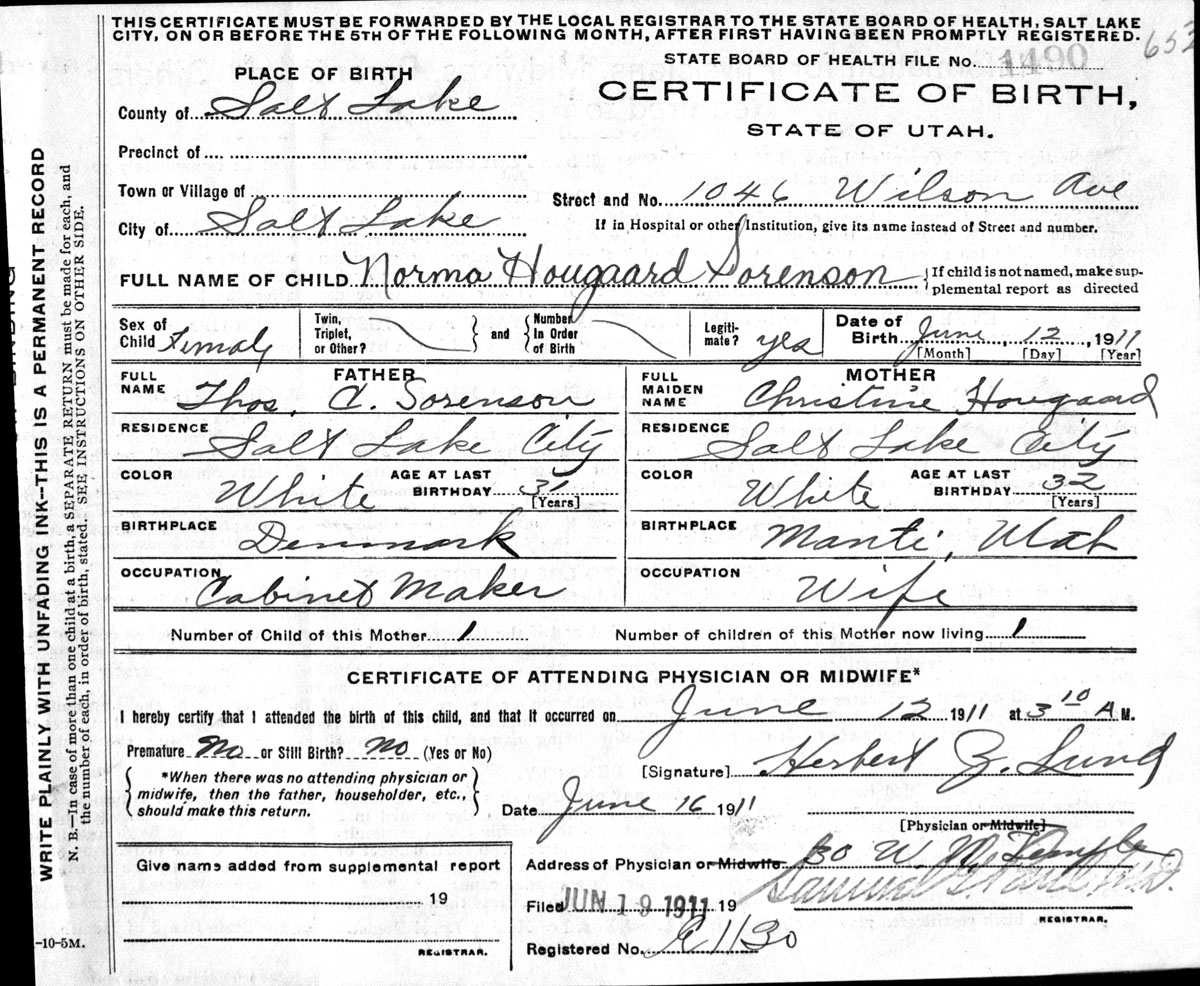 THIS CERTIFICATE MUST BE FORWARDED BY THE LOCAL REGISTRAR TO THE STATE BOARD OF HEALTH, SALT LAKE
CITY, ON OR BEFORE THE 5TH OF THE FOLLOWING MONTH, AFTER FIRST HAVING BEEN PROMPTLY REGISTERED.
653
STATE BOARD OF HEALTH FILE No. 1490
PLACE OF BIRTH
CERTIFICATE OF BIRTH,
County of Salt Lake
STATE OF UTAH.
Precinct of
Town or Village of
Street and No. 1046 Wilson Ave
City of Salt Lake
If in Hospital or other Institution, give its name instead of Street and number.
FULL NAME OF CHILD Norma Hougaard Sorenson { If child is not named, make sup-
plemental report as directed
Sex of Child Female Twin, Triplet, or Other? } and { Number In Order of Birth Legiti-mate? yes Date of Birth June, 12, 1911
[Month] [Day] [Year]
FATHER MOTHER
FULL NAME Thos. C. Sorenson FULL MAIDEN NAME Christine Hougaard
RESIDENCE Salt Lake City RESIDENCE Salt Lake City
COLOR White AGE AT LAST BIRTHDAY 31 [Years] COLOR White AGE AT LAST BIRTHDAY 32 [Years]
BIRTHPLACE Denmark BIRTHPLACE Manti, Utah
OCCUPATION Cabinet Maker OCCUPATION Wife
Number of Child of this Mother 1 Number of children of this Mother now living 1
CERTIFICATE OF ATTENDING PHYSICIAN OR MIDWIFE*
I hereby certify that I attended the birth of this child, and that it occurred on June 12 1911 at 3 10 A M.
Premature No or Still Birth? No (Yes or No)
[Signature] Herbert Z. Lund
{ *When there was no attending physician or
midwife, then the father, householder, etc.,
should make this return. }
Date June 16 1911
[Physician or Midwife]
Give name added from supplemental report
Address of Physician or Midwife 30 W. Temple
19
Filed JUN 19 1911 19
REGISTRAR.
REGISTRAR.
Registered No. 1130
WRITE PLAINLY WITH UNFADING INK—THIS IS A PERMANENT RECORD
N. B.—In case of more than one child at a birth, a SEPARATE RETURN must be made for each, and
the number of each, in order of birth, stated. SEE INSTRUCTIONS ON OTHER SIDE.
-10-5M.